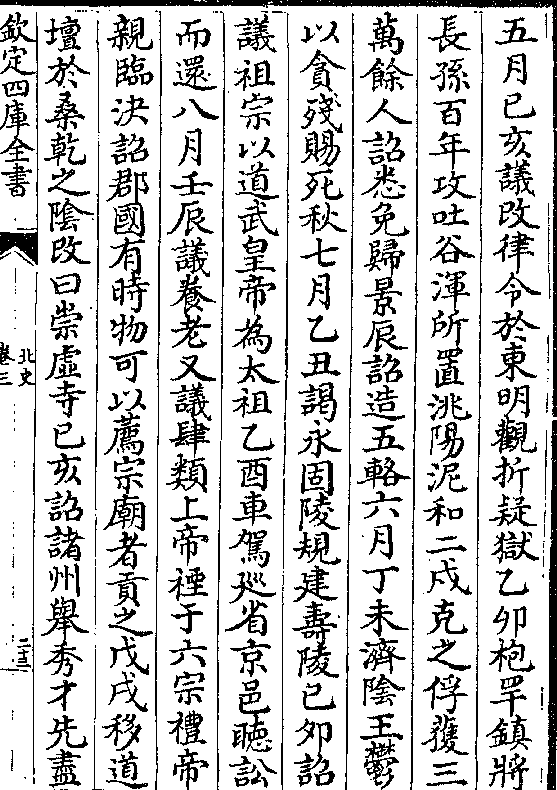 五月己亥議改律令於東明觀折疑獄乙卯枹罕鎮將
長孫百年攻吐谷渾所置洮陽泥和二戍克之俘獲三
萬餘人詔悉免歸景辰詔造五輅六月丁未濟陰王鬱
以貪殘賜死秋七月乙丑謁永固陵規建壽陵己夘詔
議祖宗以道武皇帝為太祖乙酉車駕廵省京邑聽訟
而還八月壬辰議養老又議肆類上帝禋于六宗禮帝
親臨決詔郡國有時物可以薦宗廟者貢之戊戌移道
壇於桑乾之陰改曰崇虛寺己亥詔諸州舉秀才先盡
欽定四庫全書
北史
卷三
二十三